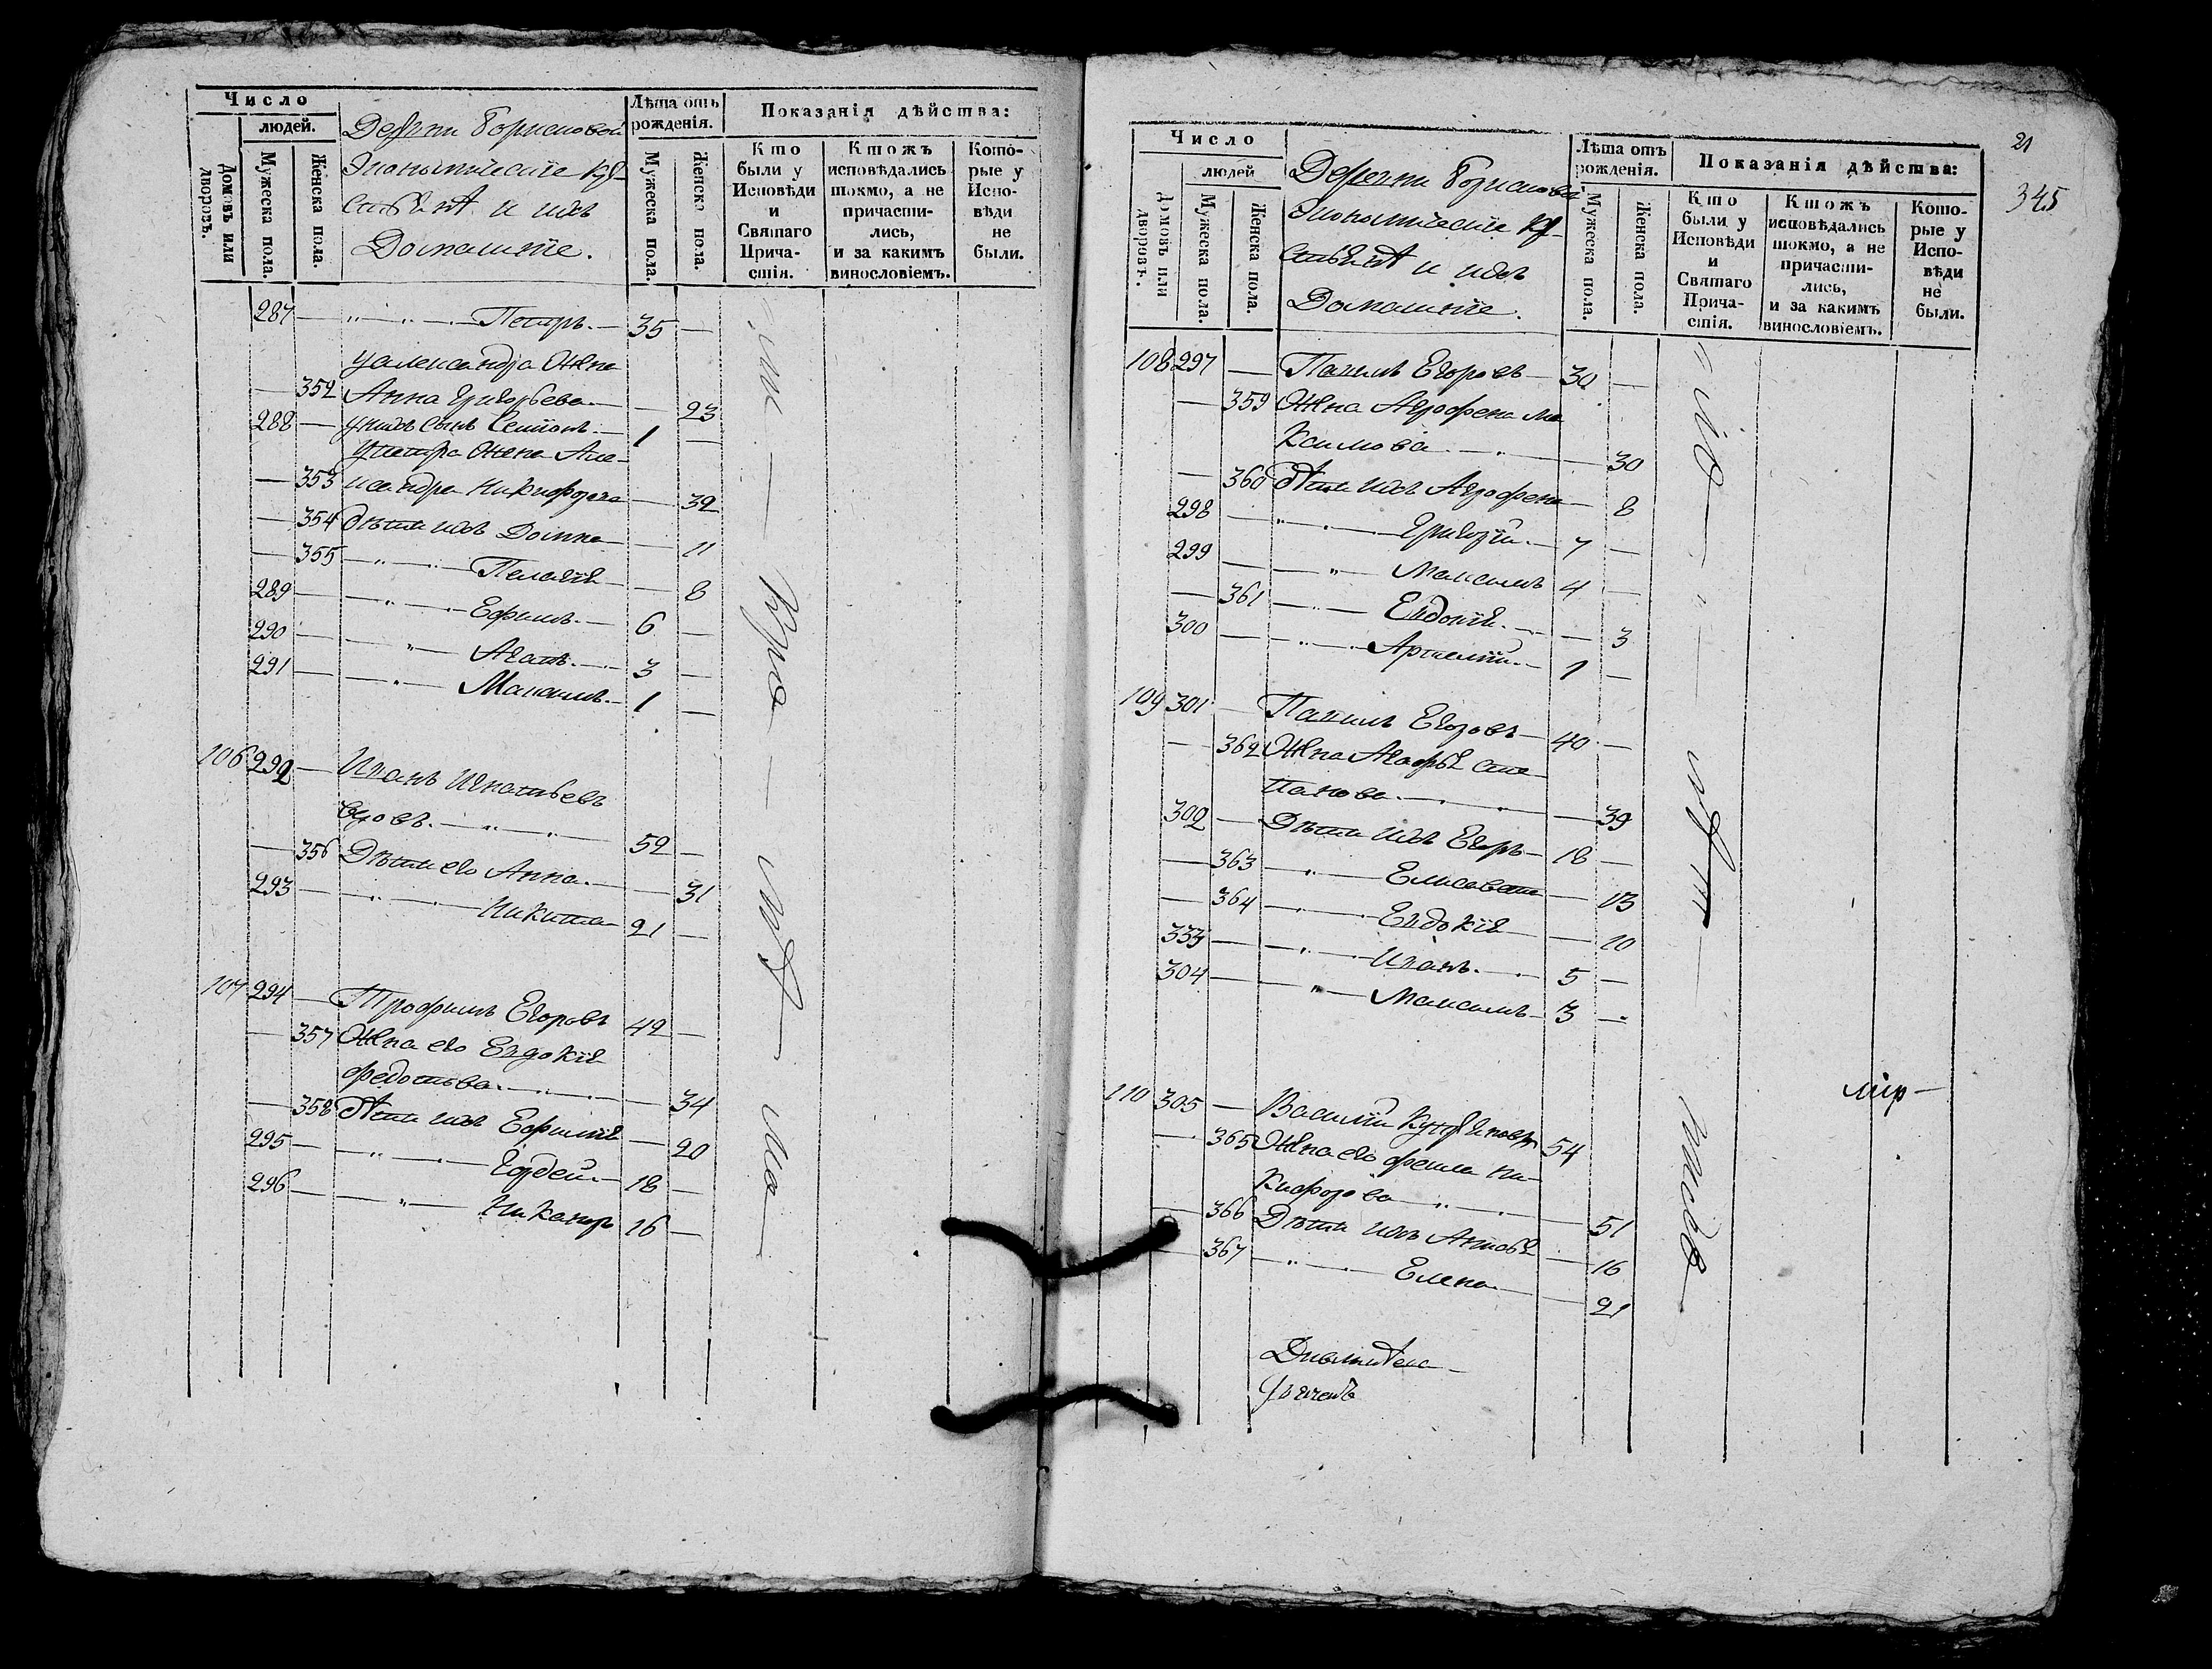 Число
людей.
Домовъ или дворовъ.
Мужеска пола.
Женска пола.
Деревни Борисовой
Экономическіе кре-
стьяня и ихъ
Домашніе.
Лѣта отъ рожденія.
Мужеска пола.
Женска пола.
Показанія дѣйства:
Кто были у Исповѣди и Святаго Прича-стія.
Ктожъ исповѣдались токмо, а не причасти-лись, и за какимъ винословіемъ.
Кото-рые у Испо-вѣди не были.
287 — Петръ. — 35 —
У александра Жена
— 352 Анна Григорьева — — 23
288 — у нихъ сынъ Семіонъ — 1 —
У петра Жена Але-
— 353 ксандра Никифорова — 32
— 354 Дѣти ихъ Домна — — 11
— 355 — Пелагія — — 8
289 — Ефимъ. — 6 —
290 — — 3 —
291 — Максимъ. — 1 —
106 292 — Иванъ Игнатьевъ
вдовъ. — 52 —
— 356 Дѣти его Анна. — — 31
293 — Никита — 21 —
107 294 — Трофимъ Егоровъ 42 —
— 357 Жена его Евдокія
Федотова. — — 34
— 358 Дѣти ихъ Ефимія — 20
295 — Гордей. — 18 —
296 — Никаноръ 16 —
21
345
Число
людей
Домовъ или дворовъ.
Мужеска пола.
Женска пола.
Деревни Борисовой
Экономическіе кре-
стьяня и ихъ
Домашніе.
Лѣта отъ рожденія.
Мужеска пола.
Женска пола.
Показанія дѣйства:
Кто были у Исповѣди и Святаго Прича-стія.
Ктожъ исповѣдались токмо, а не причасти-лись, и за какимъ винословіемъ.
Кото-рые у Испо-вѣди не были.
108 297 — Павелъ Егоровъ — 30 —
— 359 Жена Агрофена ма
ксимова — — 30
— 360 Дѣти ихъ Агрофена — 8
298 — Григорій. — 7 —
299 — Максимъ 4 —
— 361 — Евдокія. — — 3
300 — Артемій. — 1 —
109 301 — Павелъ Егоровъ — 40 —
— 362 Жена Агафья сте-
панова. — — 39
302 — Дѣти ихъ Егоръ — 18 —
— 363 — Елисавета — 13
— 364 — Евдокія — — 10
333 — Иванъ. — 5 —
304 — Максимъ — 3 —
110 305 — Василій 54
— 365 Жена его фекла Ни-
кифорова — — 51
— 366 Дѣти ихъ — 16
— 367 — Елена — — 21